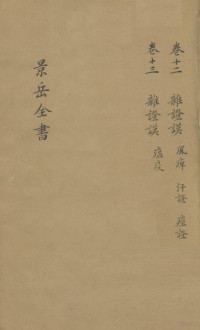 卷十二 雜證謨 風痺 汗證 痙證
卷十三 雜證謨 瘟疫
景岳全書